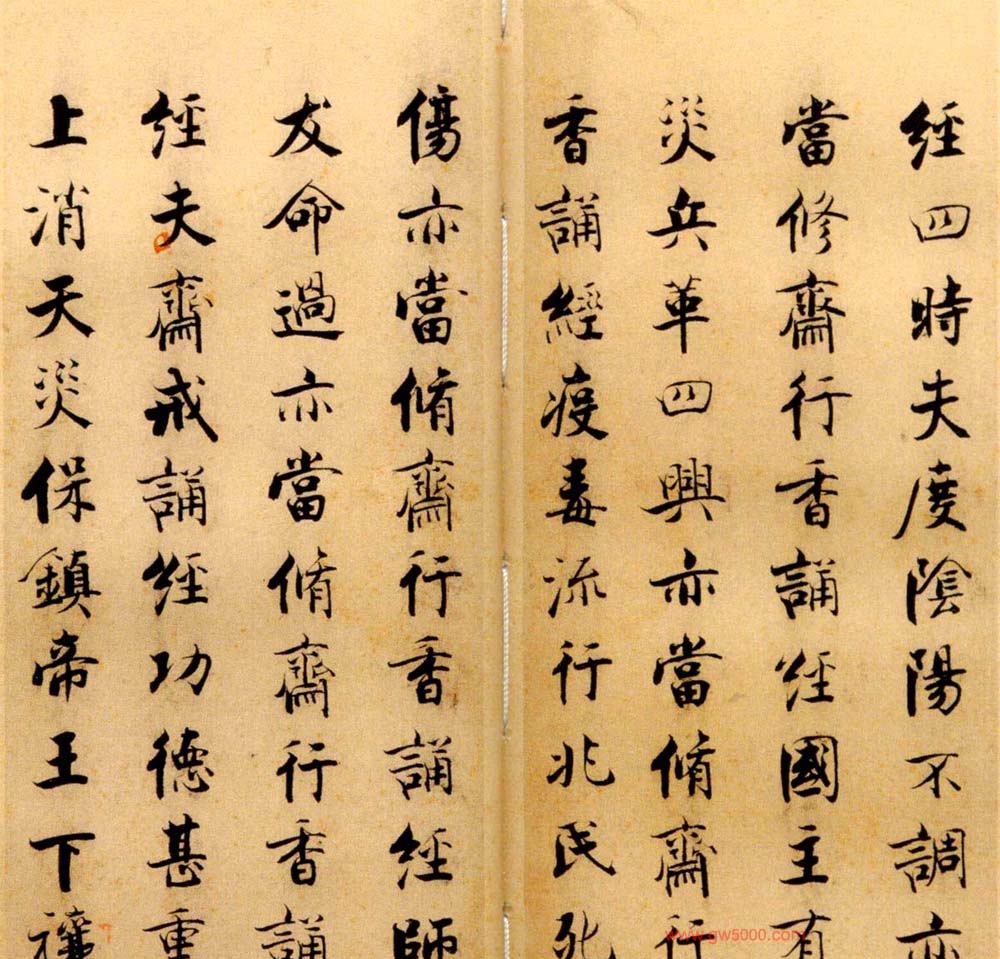 經四時失度陰陽不調亦
當修齋行香誦經國主有
災兵革四興亦當脩齋行
香誦經疫毒流行兆民死
傷亦當脩齋行香誦經師
友命過亦當脩齋行香誦
經夫齋戒誦經功德甚重
上消天災保鎮帝王下禳
www.gw5000.com